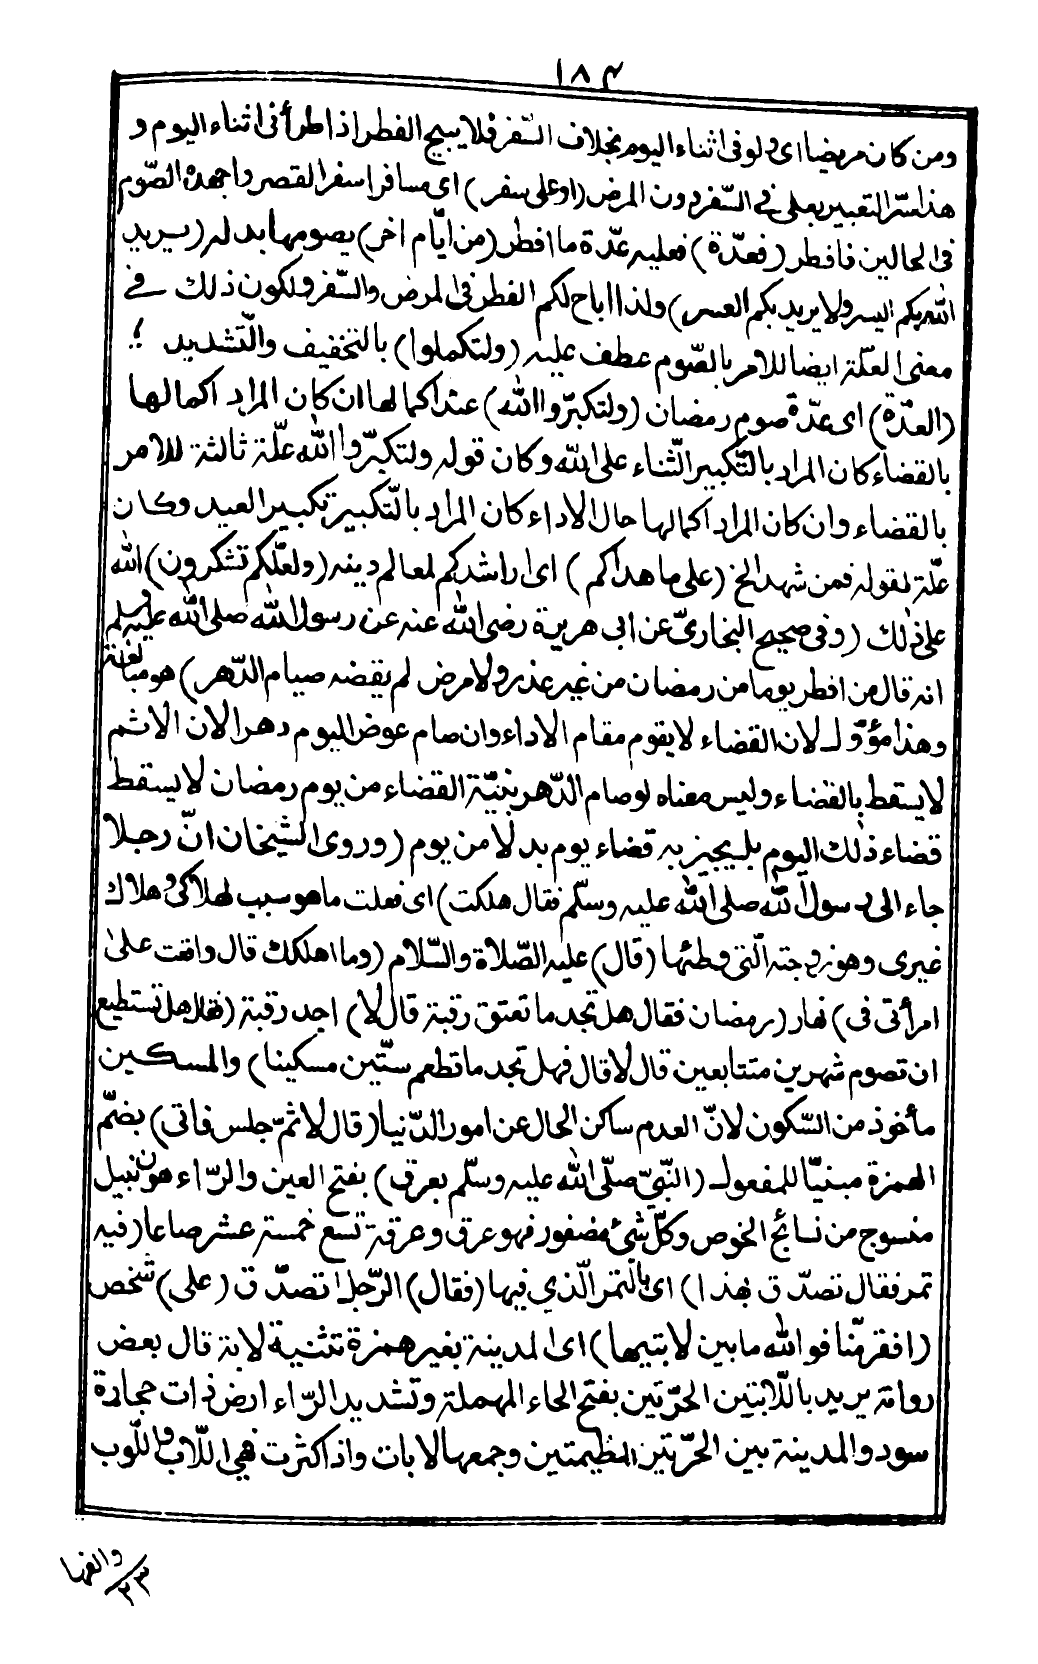 ١٨٣
ومن كان مريضا اى ولو فى اثناء اليوم بخلاف السّفر فلا يبيح الفطر اذا طرأ فى اثناء اليوم و
هذا سرّ التعبير بعلى فى السّفر دون المرض (او على سفر) اى مسافرا سفر القصر واجهده الصّوم
فى الحالين فافطر (فعدّة) فعليه عدّة ما افطر (من ايّام اخر) يصومها بدله (يريد
الله بكم اليسر ولا يريد بكم العسر) ولذا اباح لكم الفطر فى المرض والسّفر ولكون ذلك فى
معنى العلّة ايضا للامر بالصّوم عطف عليه (ولتكملوا) بالتخفيف والتّشديد
(العدّة) اى عدّة صوم رمضان (ولتكبّروا الله) عند اكمالها ان كان المراد اكمالها
بالقضاء كان المراد بالتّكبير الثّناء على الله وكان قوله ولتكبّروا الله علّة ثالثة للامر
بالقضاء وان كان المراد اكمالها حال الاداء كان المراد بالتّكبير تكبير العيد وكان
علّة لقوله فمن شهد الخ (على ما هداكم) اى ارشدكم لمعالم دينه (ولعلّكم تشكرون) الله
على ذلك (وفى صحيح البخارىّ عن ابى هريرة رضى الله عنه عن رسول الله صلى الله عليه وسلم
انه قال من افطر يوما من رمضان من غير عذر ولا مرض لم يقضه صيام الدّهر) هو مبالغة
وهذا مؤوّل لان القضاء لا يقوم مقام الاداء وان صام عوض اليوم دهرا لان الاثم
لا يسقط بالقضاء وليس معناه لو صام الدّهر بنيّة القضاء من يوم رمضان لا يسقط
قضاء ذلك اليوم بل يجيز به قضاء يوم بدلا من يوم (وروى الشيخان انّ رجلا
جاء الى رسول الله صلى الله عليه وسلّم فقال هلكت) اى فعلت ما هو سبب لهلاكى وهلاك
غيرى وهو زوجته الّتى وطئها (قال) عليه الصّلاة والسّلام (وما اهلكك قال واقعت على
امرأتى فى) نهار (رمضان فقال هل تجد ما تعتق رقبة قال لا) اجد رقبة (فقال هل تستطيع
ان تصوم شهرين متتابعين قال لا قال فهل تجد ما تطعم ستّين مسكينا) والمسكين
مأخوذ من السّكون لانّ العدم ساكن الحال عن امور الدّنيا (قال لا ثمّ جلس فاتى) بضمّ
الهمزة مبنيّا للمفعول (النّبىّ صلّى الله عليه وسلّم بعرق) بفتح العين والرّاء هو زنبيل
منسوج من نسائج الخوص وكلّ شئ مضفور فهو عرق وعرقة تسع خمسة عشر صاعا (فيه
تمر فقال تصدّق بهذا) اى بالتمر الّذى فيها (فقال) الرّجل اتصدّق (على) شخص
(افقر منّا فوالله ما بين لابتيها) اى المدينة بغير همزة تثنية لابة قال بعض
رواته يريد باللّابتين الحرّتين بفتح الحاء المهملة وتشديد الرّاء ارض ذات حجارة
سود والمدينة بين الحرّتين العظيمتين وجمعها لابات واذا كثرت فهى اللّاب واللّوب
٢٣